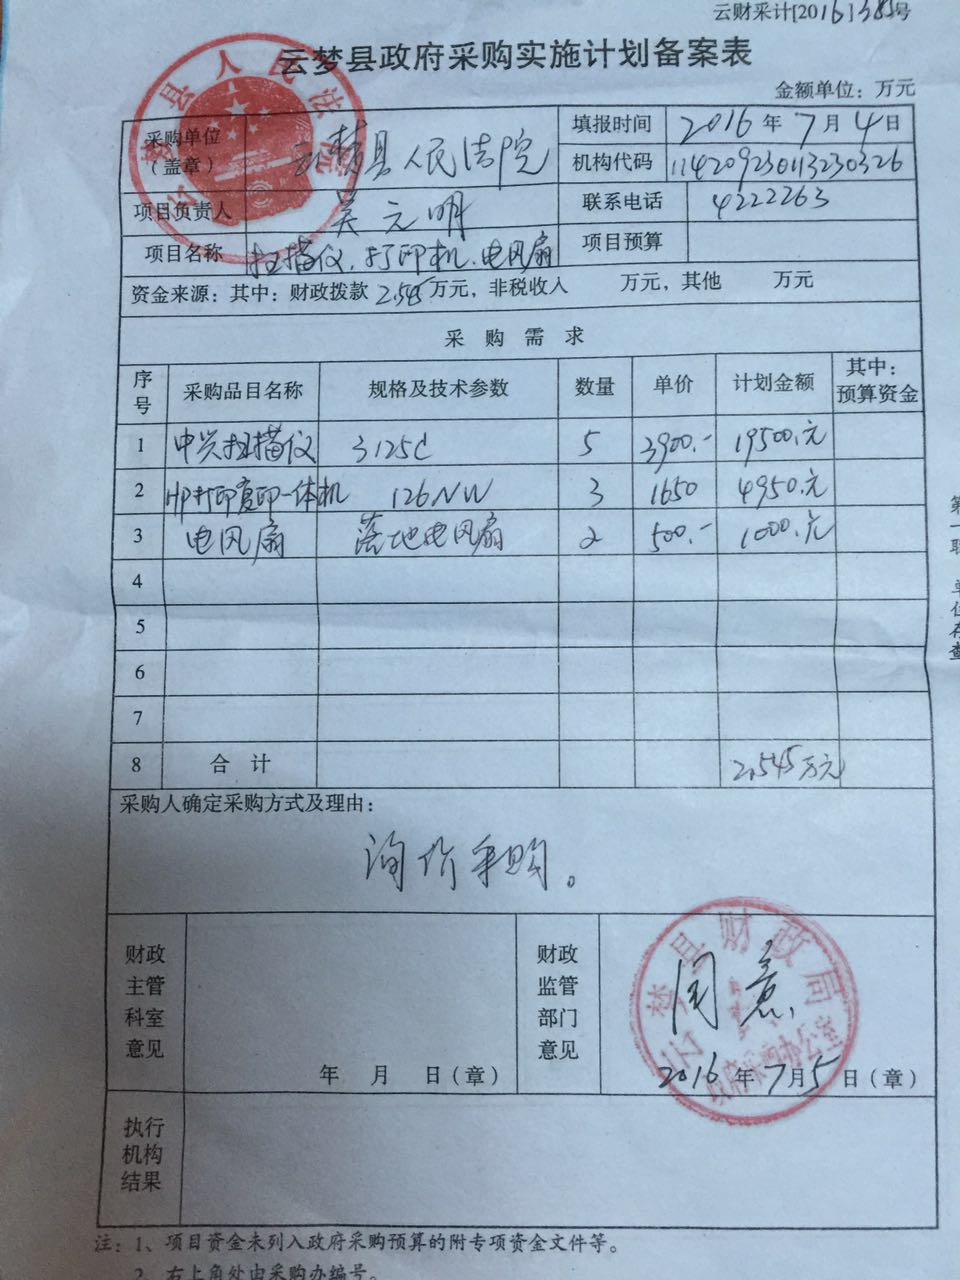 云财采计[2016]385号
云梦县政府采购实施计划备案表
金额单位：万元
采购单位（盖章） 云梦县人民法院 填报时间 2016年7月4日
机构代码 11420923011323032b
项目负责人 吴元明 联系电话 4222263
项目名称 扫描仪、打印机、电风扇 项目预算
资金来源：其中：财政拨款 2.545 万元，非税收入 万元，其他 万元
采购需求
序号 采购品目名称 规格及技术参数 数量 单价 计划金额 其中：预算资金
1 中兴扫描仪 3125C 5 3900.- 19500.元
2 HP打印复印一体机 126NW 3 1650 4950.元
3 电风扇 落地电风扇 2 500.- 1000.元
4
5
6
7
8 合计 2.545万元
采购人确定采购方式及理由：
询价采购。
财政主管科室意见 年 月 日（章）
财政监管部门意见 同意 2016年7月5日（章）
云梦县财政局
政府采购办公室
执行机构结果
注：1、项目资金未列入政府采购预算的附专项资金文件等。
2、右上角处由采购办编号。
第一联 单位存查